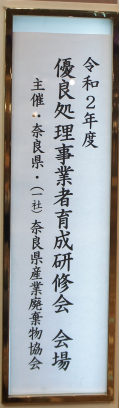 令和２年度
優良処理事業者育成研修会　会場
主催：奈良県・（一社）奈良県産業廃棄物協会